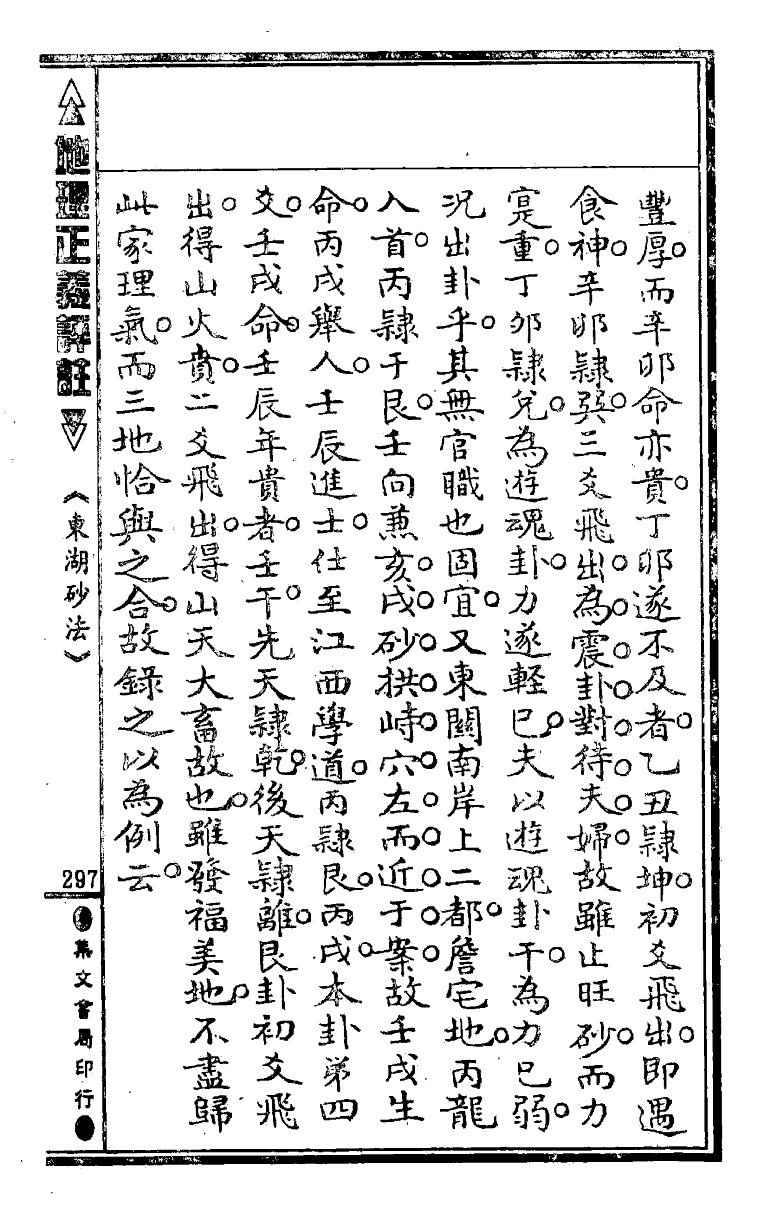 豐厚。而辛卯命亦貴。丁卯遂不及者。乙丑隷坤。初爻飛出。即遇
食神。辛卯隷巽。三爻飛出。為。震。卦。對。待。夫。婦。故雖止旺砂。而力
寔重。丁卯隷兌。為遊魂卦。力遂輕已。夫以遊魂卦干。為力已弱。
况出卦乎。其無官職也固宜。又東關南岸上二都。詹宅地。丙龍
入首。丙隷于艮。壬向兼亥。戌。砂。拱。峙。穴。左。而。近。于。案。故壬戌生
命。丙戌舉人。壬辰進士。仕至江西學道。丙隷艮。丙戌。本卦第四
爻。壬戌命。壬辰年貴者。壬干。先天隷乾。後天隷離。艮卦初爻飛
出。得山火賁。二爻飛出。得山天大畜故也。雖發福美地。不盡歸
此家理氣。而三地恰與之合。故錄之以為例云。
地理正義評註
《東湖砂法》
297
集文書局印行